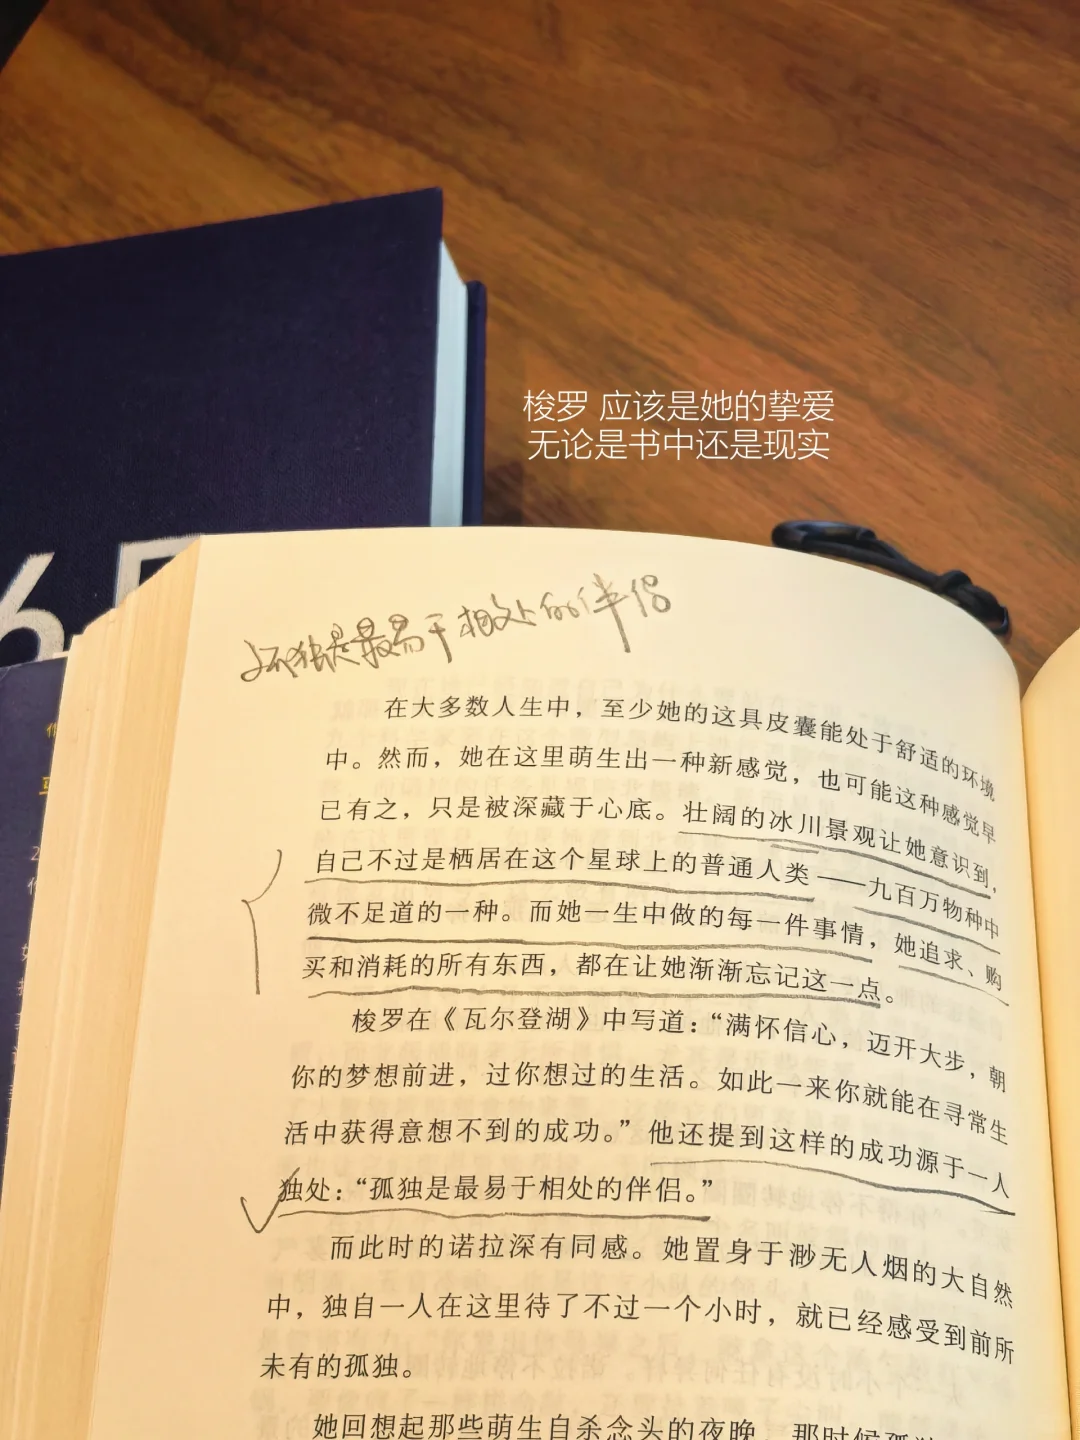 梭罗 应该是她的挚爱
无论是书中还是现实
孤独是最易于相处的伴侣
在大多数人生中，至少她的这具皮囊能处于舒适的环境
中。然而，她在这里萌生出一种新感觉，也可能这种感觉早
已有之，只是被深藏于心底。壮阔的冰川景观让她意识到，
自己不过是栖居在这个星球上的普通人类——九百万物种中
微不足道的一种。而她一生中做的每一件事情，她追求、购
买和消耗的所有东西，都在让她渐渐忘记这一点。
梭罗在《瓦尔登湖》中写道：“满怀信心，迈开大步，朝
你的梦想前进，过你想过的生活。如此一来你就能在寻常生
活中获得意想不到的成功。”他还提到这样的成功源于一人
独处：“孤独是最易于相处的伴侣。”
而此时的诺拉深有同感。她置身于渺无人烟的大自然
中，独自一人在这里待了不过一个小时，就已经感受到前所
未有的孤独。
她回想起那些萌生自杀念头的夜晚，那时候孤独